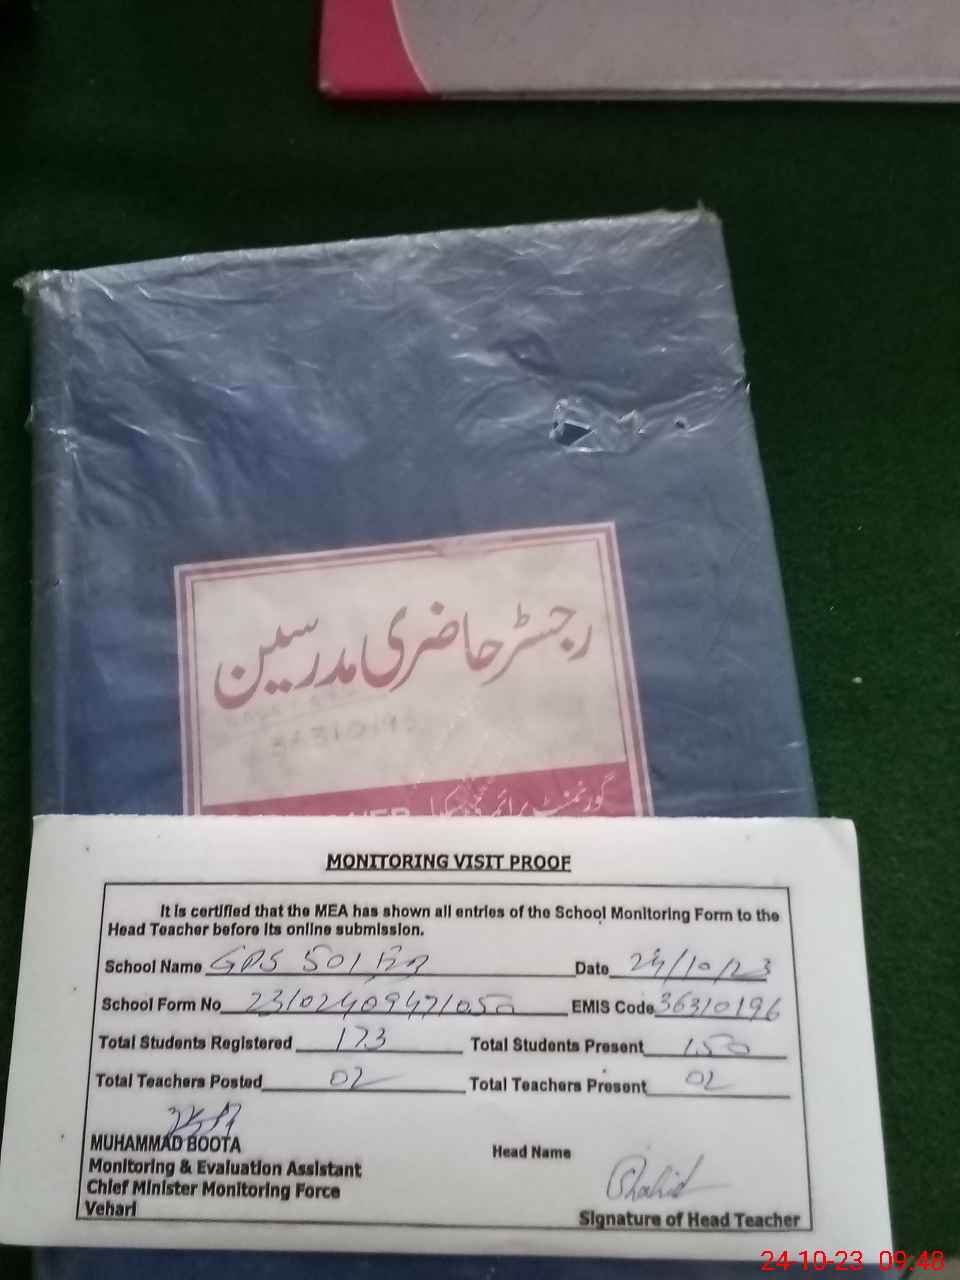 رجسٹر حاضری مدرسین
3631019
گورنمنٹ پرائمری
MONITORING VISIT PROOF
It is certified that the MEA has shown all entries of the School Monitoring Form to the
Head Teacher before its online submission.
School Name GPS 501 EB Date 24/10/23
School Form No 23102409471050 EMIS Code 36310196
Total Students Registered 173 Total Students Present 150
Total Teachers Posted 02 Total Teachers Present 02
MUHAMMAD BOOTA
Head Name
Monitoring & Evaluation Assistant
Chief Minister Monitoring Force
Shahid
Vehari
Signature of Head Teacher
24-10-23 09:48